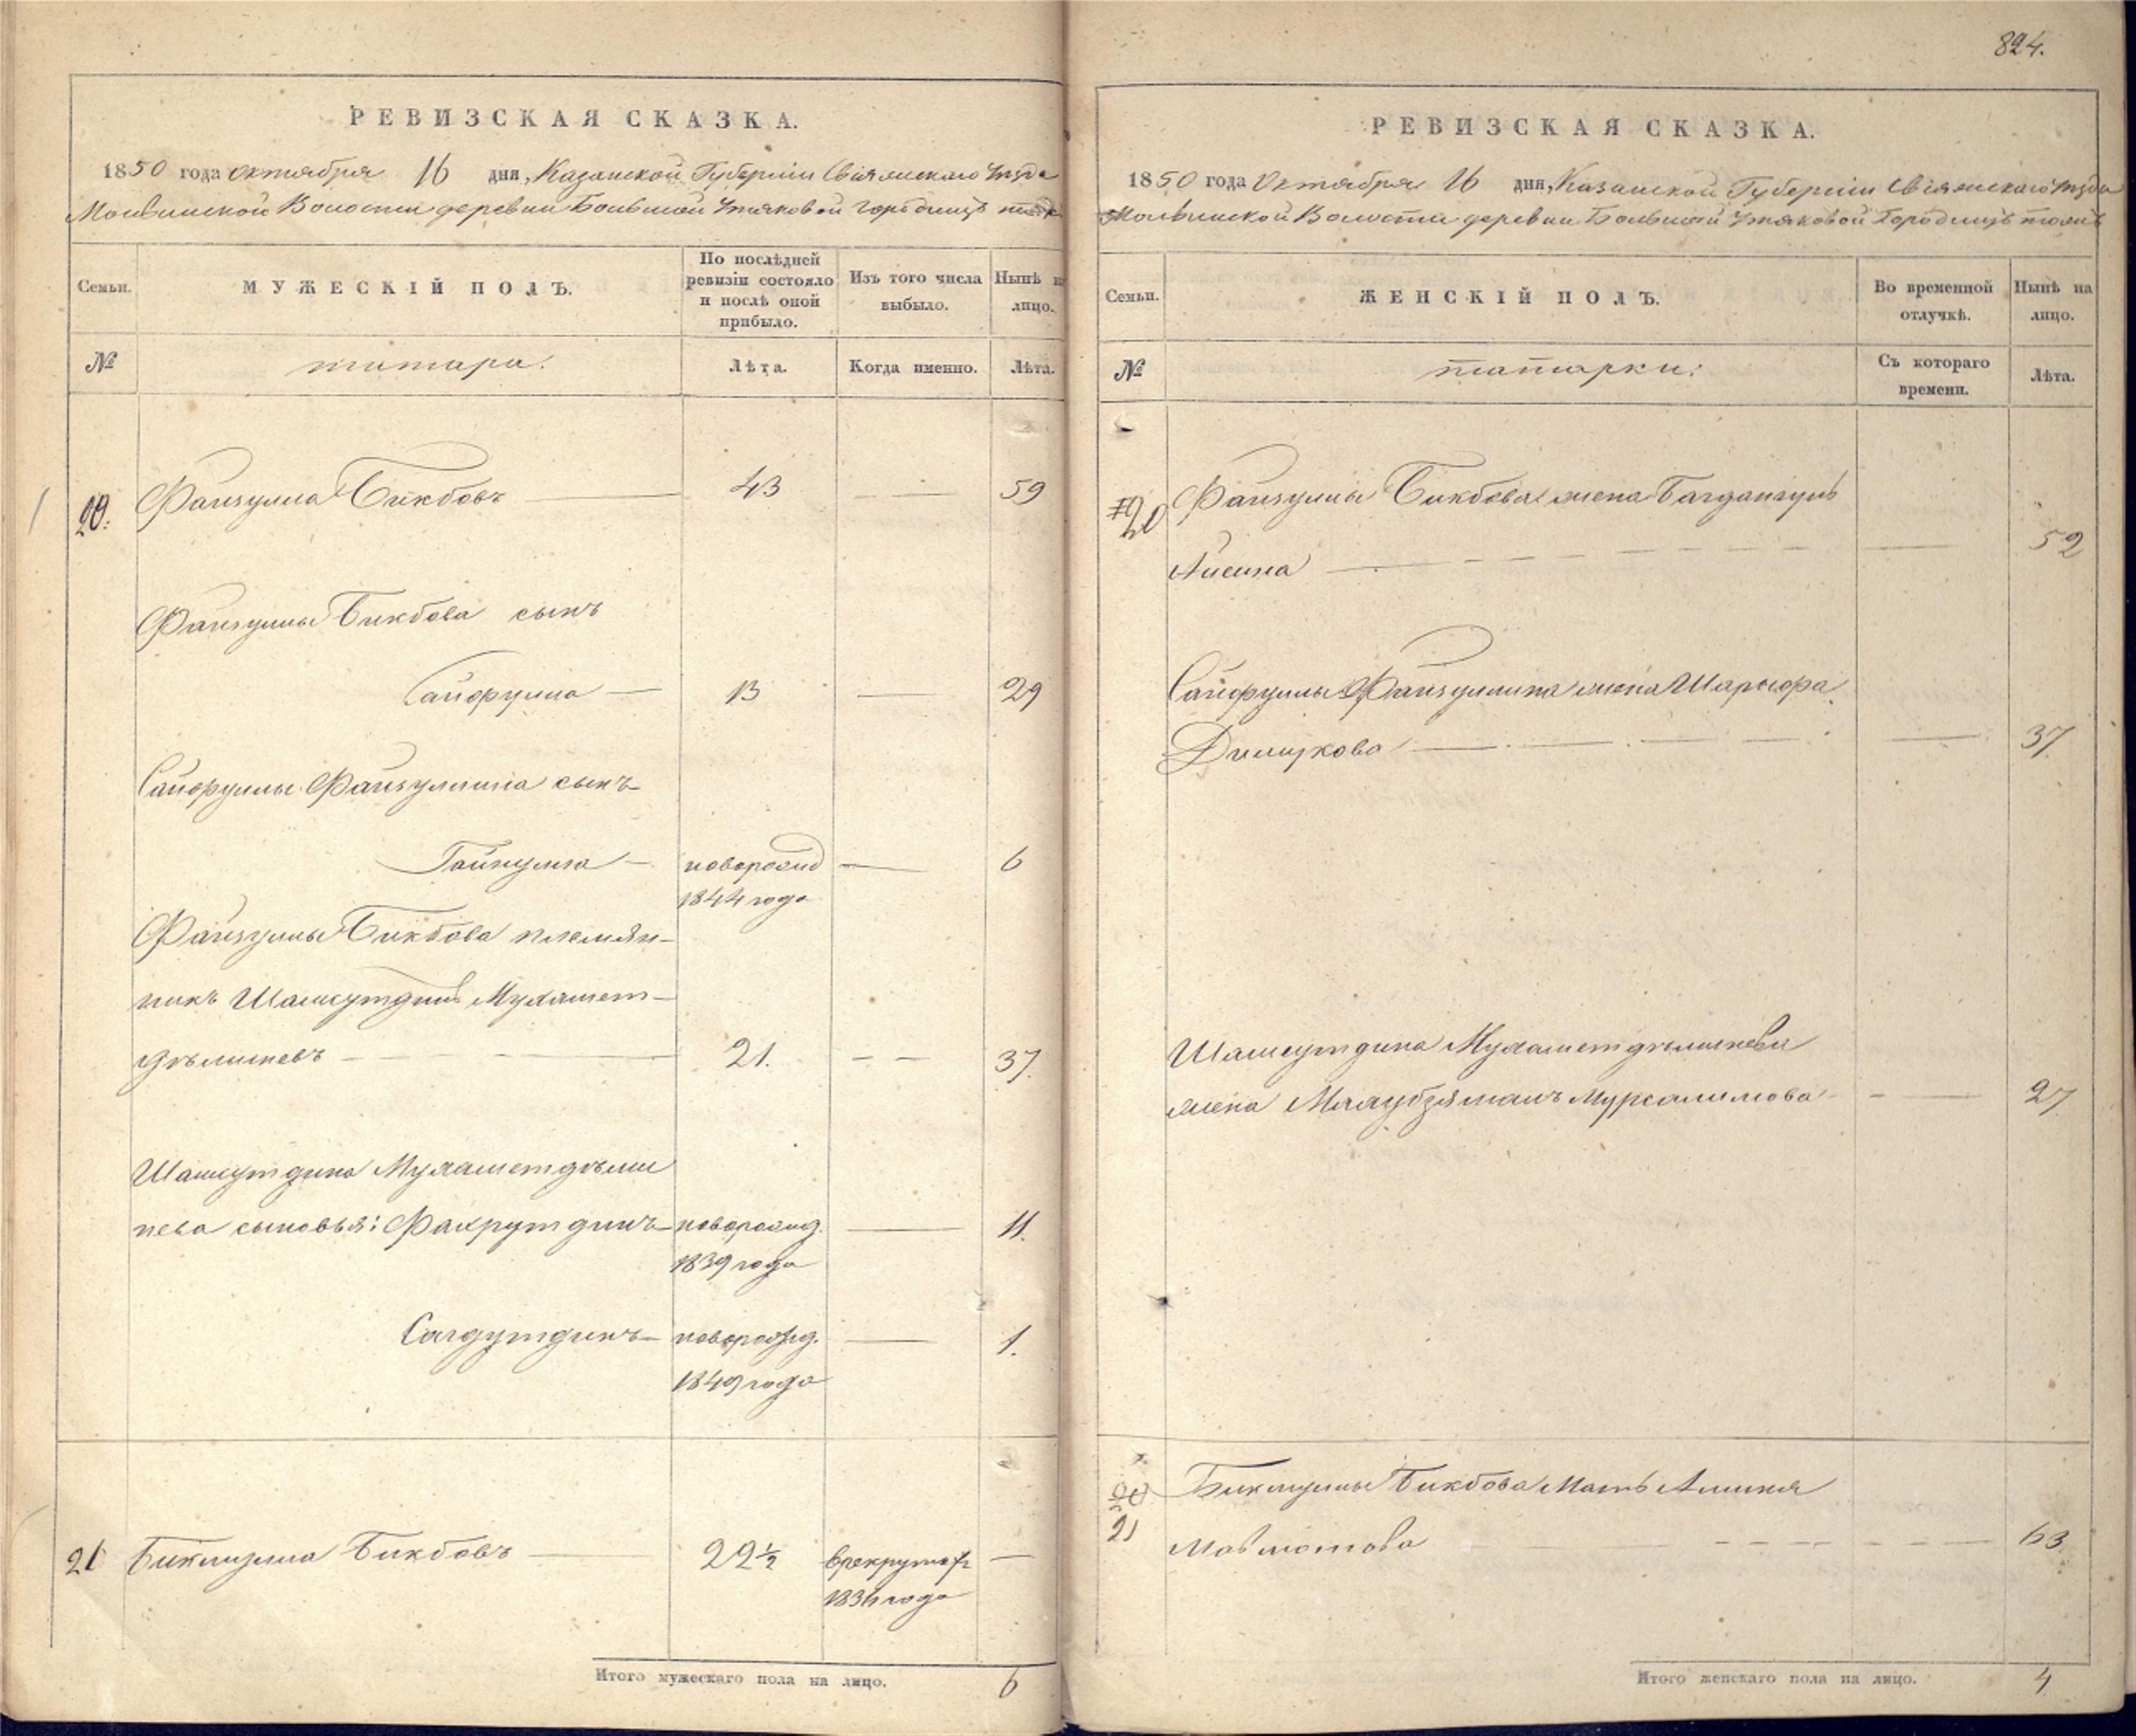 РЕВИЗСКАЯ СКАЗКА.
1850 года Октября 16 дня, Казанской Губерніи Свіяжскаго Уѣзда
Волости деревни Большой Утяковой Городищѣ тожъ
Семьи.
МУЖЕСКІЙ ПОЛЪ.
По послѣдней ревизіи состояло и послѣ оной прибыло.
Изъ того числа выбыло.
Нынѣ на лицо.
№
татары.
Лѣта.
Когда именно.
Лѣта.
20. Файзулла Бикбовъ 43 — 59
Файзуллы Бикбова сынъ
Сайфулла — 13 — 29
Сайфуллы Файзуллина сынъ
Гайнулла — новорожд — 6
1844 года
Файзуллы Бикбова племян-
никъ Шамсутдинъ Мухамет-
21. — — 37.
Шамсутдина
сыновья: Фахрутдинъ новорожд. — 11.
1839 года
Сагдутдинъ новорожд. — 1.
1849 года
21 Бикбовъ 22½ в рекруты —
года
Итого мужескаго пола на лицо. 6
824.
РЕВИЗСКАЯ СКАЗКА.
1850 года Октября 16 дня, Казанской Губерніи Свіяжскаго Уѣзда
Волости деревни Большой Утяковой Городищѣ тожъ
Семьи.
ЖЕНСКІЙ ПОЛЪ.
Во временной отлучкѣ.
Нынѣ на лицо.
№
татарки:
Съ котораго времени.
Лѣта.
20 Файзуллы Бикбова жена
— 52
Сайфуллы Файзуллина жена
— 37.
Шамсутдина
жена Мурсалимова — 27
21 Бикбова Мать
63
Итого женскаго пола на лицо. 4